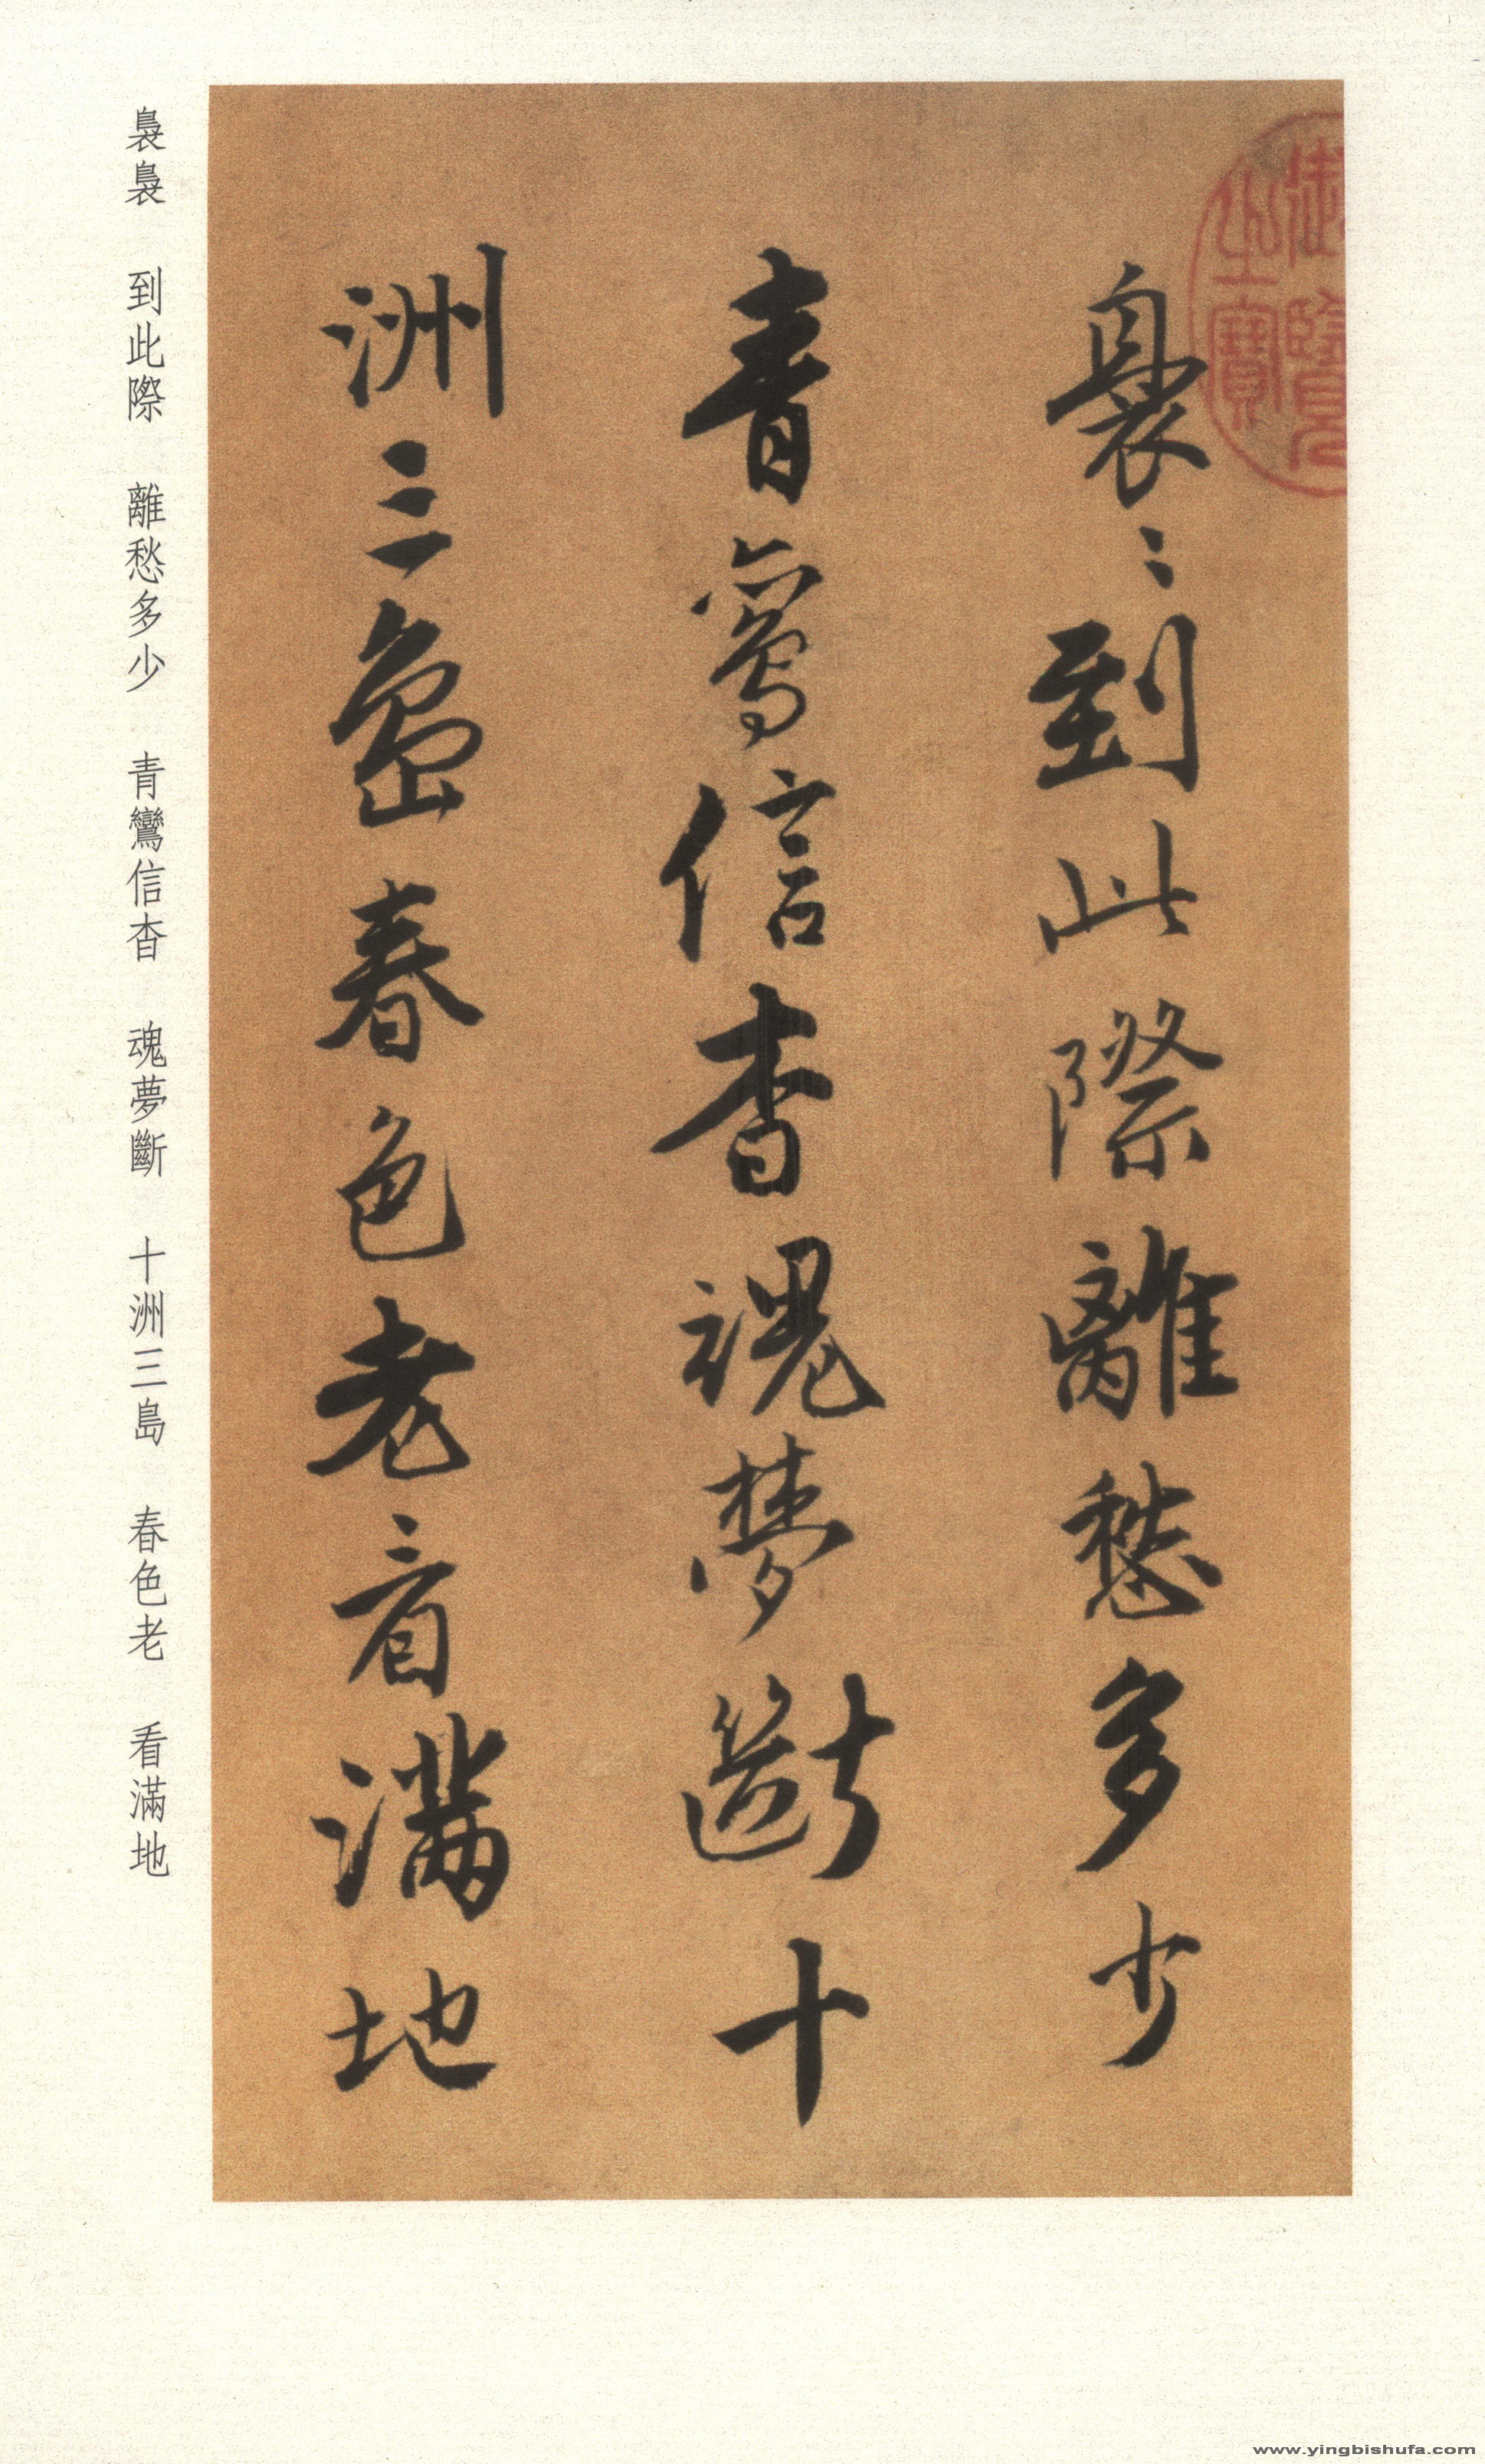 裊〻到此際離愁多少
青鸞信杳魂夢斷十
洲三島春色老看滿地
御覽之寶
裊裊 到此際 離愁多少 青鸞信杳 魂夢斷 十洲三島 春色老 看滿地
www.yingbishufa.com